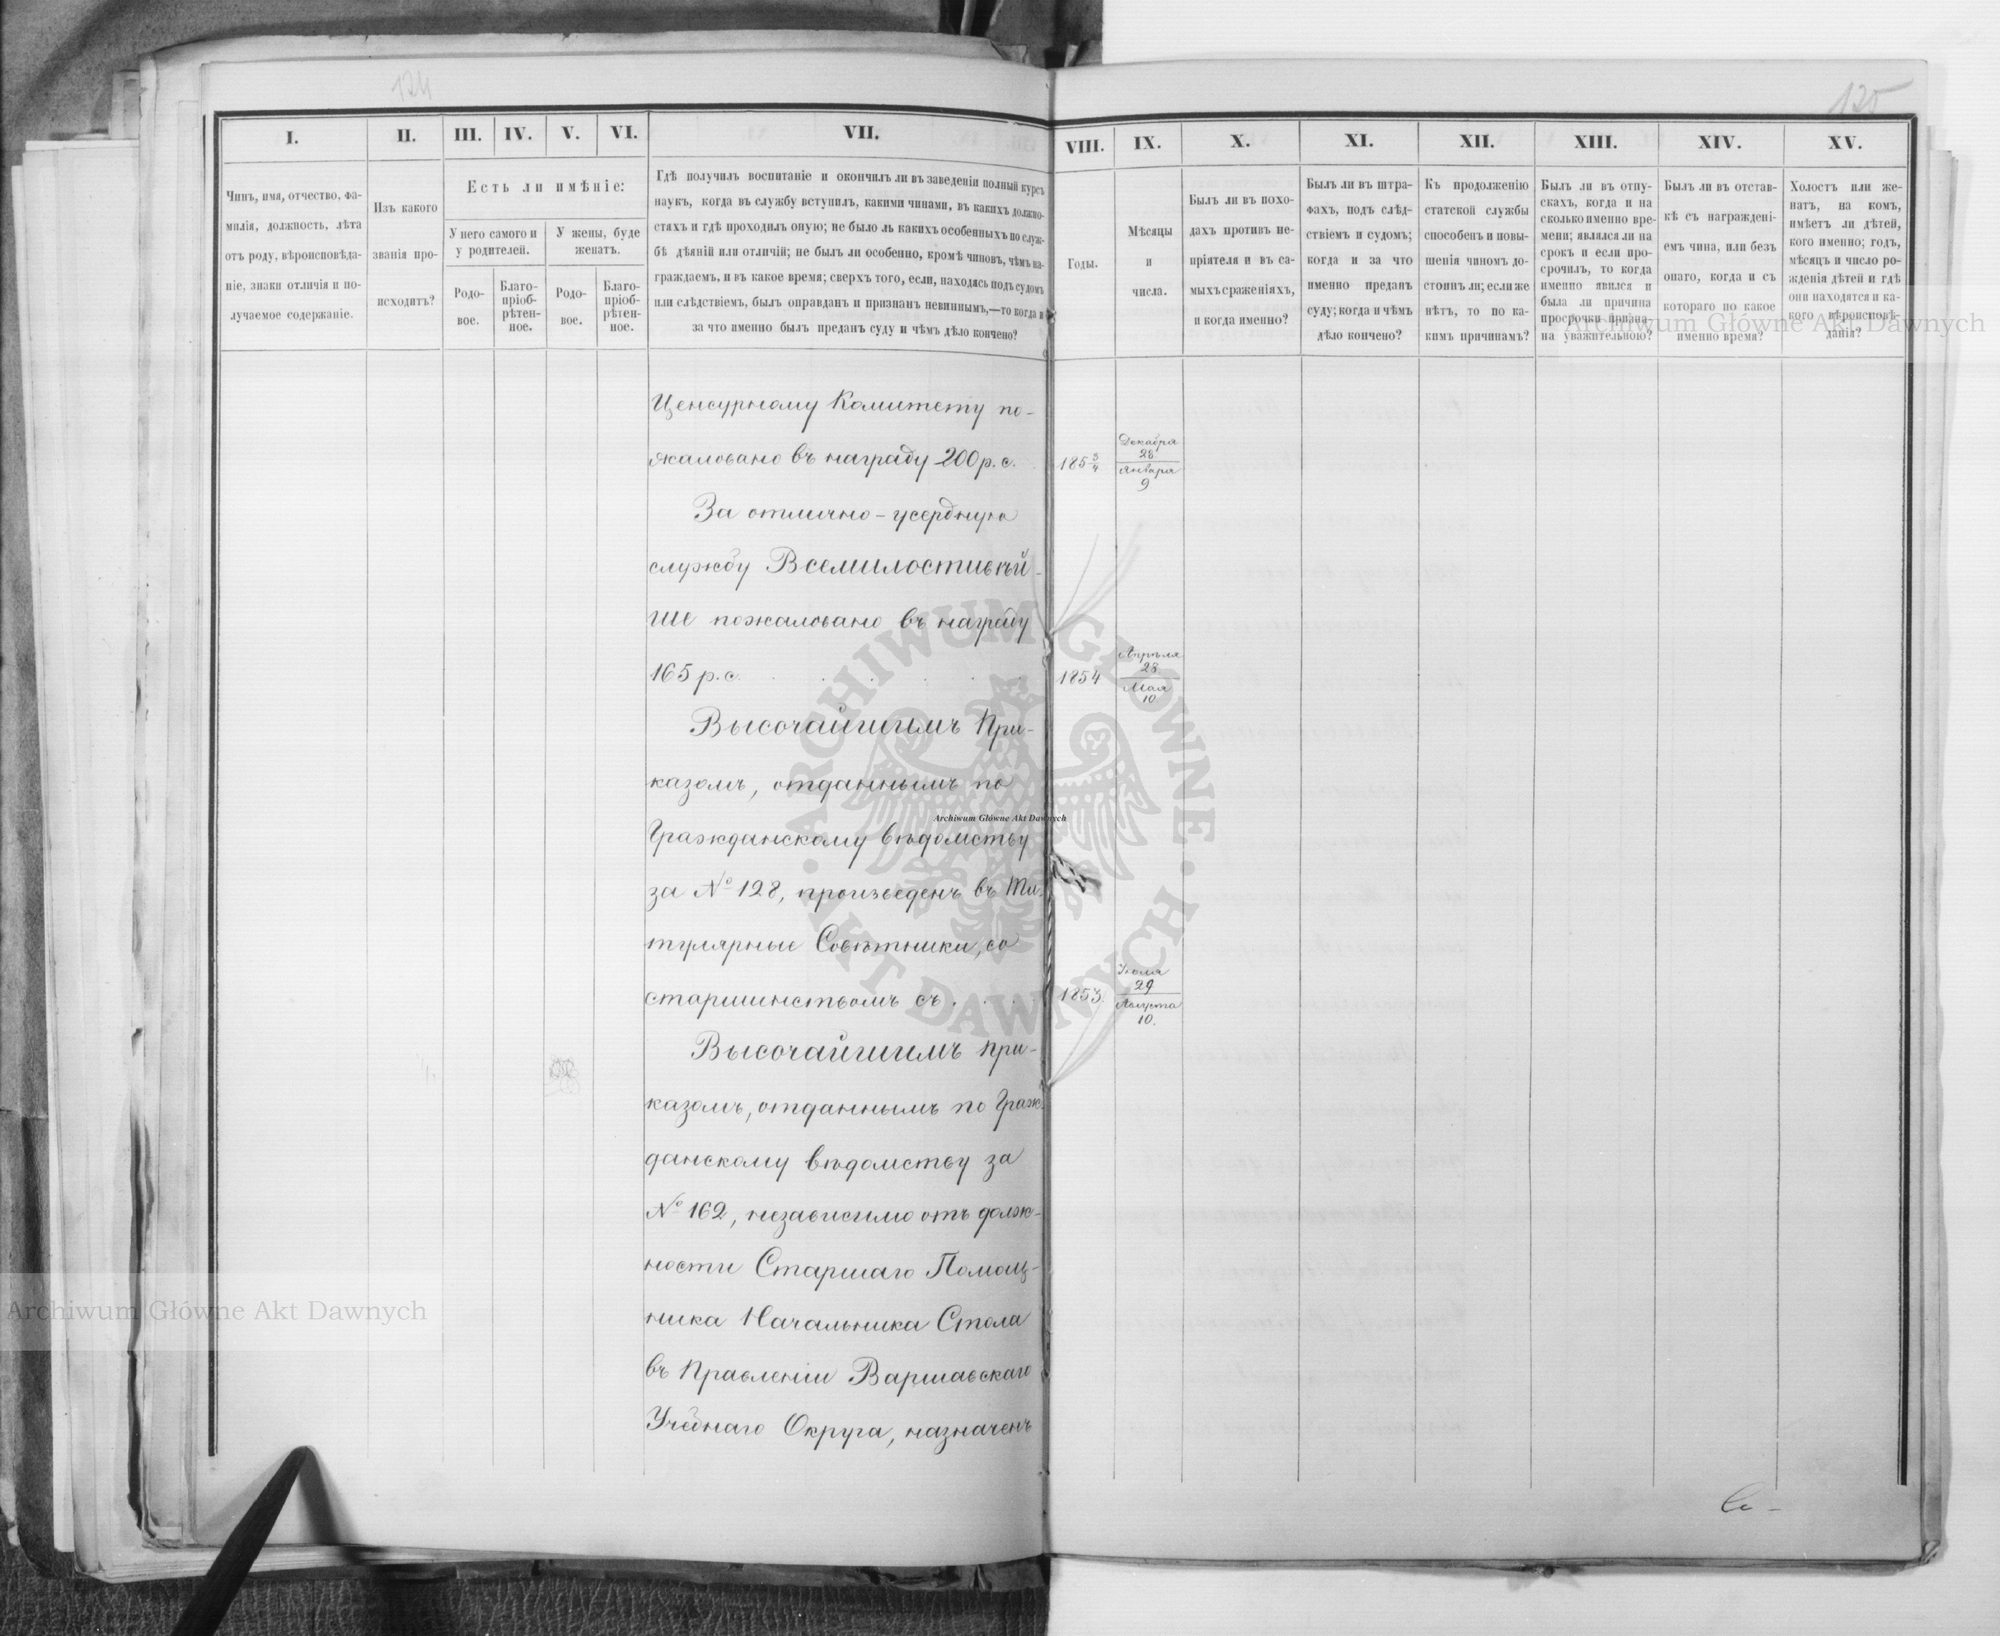 124
125
I.
II.
III.
IV.
V.
VI.
VII.
VIII.
IX.
X.
XI.
XII.
XIII.
XIV.
XV.
Чинъ, имя, отчество, фа-
милія, должность, лѣта
отъ роду, вѣроисповѣда-
ніе, знаки отличія и по-
лучаемое содержаніе.
Изъ какого
званія про-
исходитъ?
Есть ли имѣніе:
У него самого и
у родителей.
У жены, буде
женатъ.
Родо-
вое.
Благо-
пріоб-
рѣтен-
ное.
Родо-
вое.
Благо-
пріоб-
рѣтен-
ное.
Гдѣ получилъ воспитаніе и окончилъ ли въ заведеніи полный курсъ
наукъ, когда въ службу вступилъ, какими чинами, въ какихъ должно-
стяхъ и гдѣ проходилъ оную; не было ль какихъ особенныхъ по служ-
бѣ дѣяній или отличій; не былъ ли особенно, кромѣ чиновъ, чѣмъ на-
граждаемъ, и въ какое время; сверхъ того, если, находясь подъ судомъ
или слѣдствіемъ, былъ оправданъ и признанъ невиннымъ,—то когда и
за что именно былъ преданъ суду и чѣмъ дѣло кончено?
Годы.
Мѣсяцы
и
числа.
Былъ ли въ похо-
дахъ противъ не-
пріятеля и въ са-
мыхъ сраженіяхъ,
и когда именно?
Былъ ли въ штра-
фахъ, подъ слѣд-
ствіемъ и судомъ;
когда и за что
именно преданъ
суду; когда и чѣмъ
дѣло кончено?
Къ продолженію
статской службы
способенъ и повы-
шенія чиномъ до-
стоинъ ли; если же
нѣтъ, то по ка-
кимъ причинамъ?
Былъ ли въ отпу-
скахъ, когда и на
сколько именно вре-
мени; являлся ли на
срокъ и если про-
срочилъ, то когда
именно явился и
была ли причина
просрочки призна-
на уважительною?
Былъ ли въ отстав-
кѣ съ награждені-
емъ чина, или безъ
онаго, когда и съ
котораго по какое
именно время?
Холостъ или же-
натъ, на комъ,
имѣетъ ли дѣтей,
кого именно; годъ,
мѣсяцъ и число ро-
жденія дѣтей и гдѣ
они находятся и ка-
кого вѣроисповѣ-
данія?
Ценсурному Комитету по-
жаловано въ награду 200 р. с.
1853/4
Декабря
28
Января
9
За отлично-усердную
службу Всемилостивѣй-
ше пожаловано въ награду
165 р. с.
1854
Апрѣля
28
Мая
10
Высочайшимъ При-
казомъ, отданнымъ по
Гражданскому вѣдомству
за № 128, произведенъ въ Ти-
тулярные Совѣтники, со
старшинствомъ съ . . .
1853.
Іюля
29
Августа
10.
Высочайшимъ При-
казомъ, отданнымъ по Граж-
данскому вѣдомству за
№ 162, независимо отъ долж-
ности Старшаго Помощ-
ника Начальника Стола
въ Правленіи Варшавскаго
Учебнаго Округа, назначенъ
Archiwum Główne Akt Dawnych
Archiwum Główne Akt Dawnych
Archiwum Główne Akt Dawnych
ARCHIWUM GŁÓWNE · AKT DAWNYCH ·